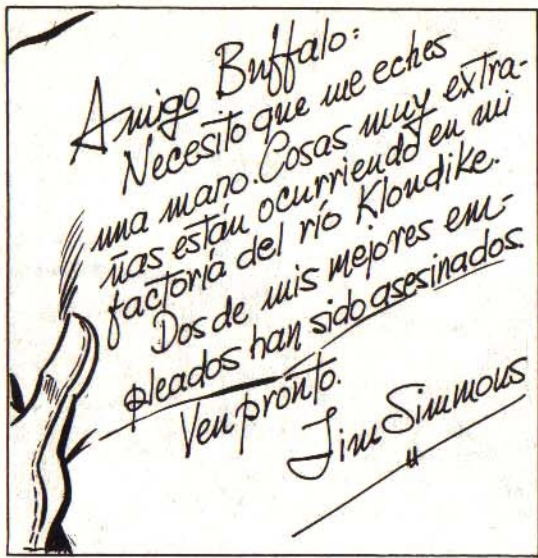 Amigo Buffalo:
Necesito que me eches
una mano. Cosas muy extra-
ñas están ocurriendo en mi
factoría del río Klondike.
Dos de mis mejores em-
pleados han sido asesinados.
Ven pronto.
Jim Simmons